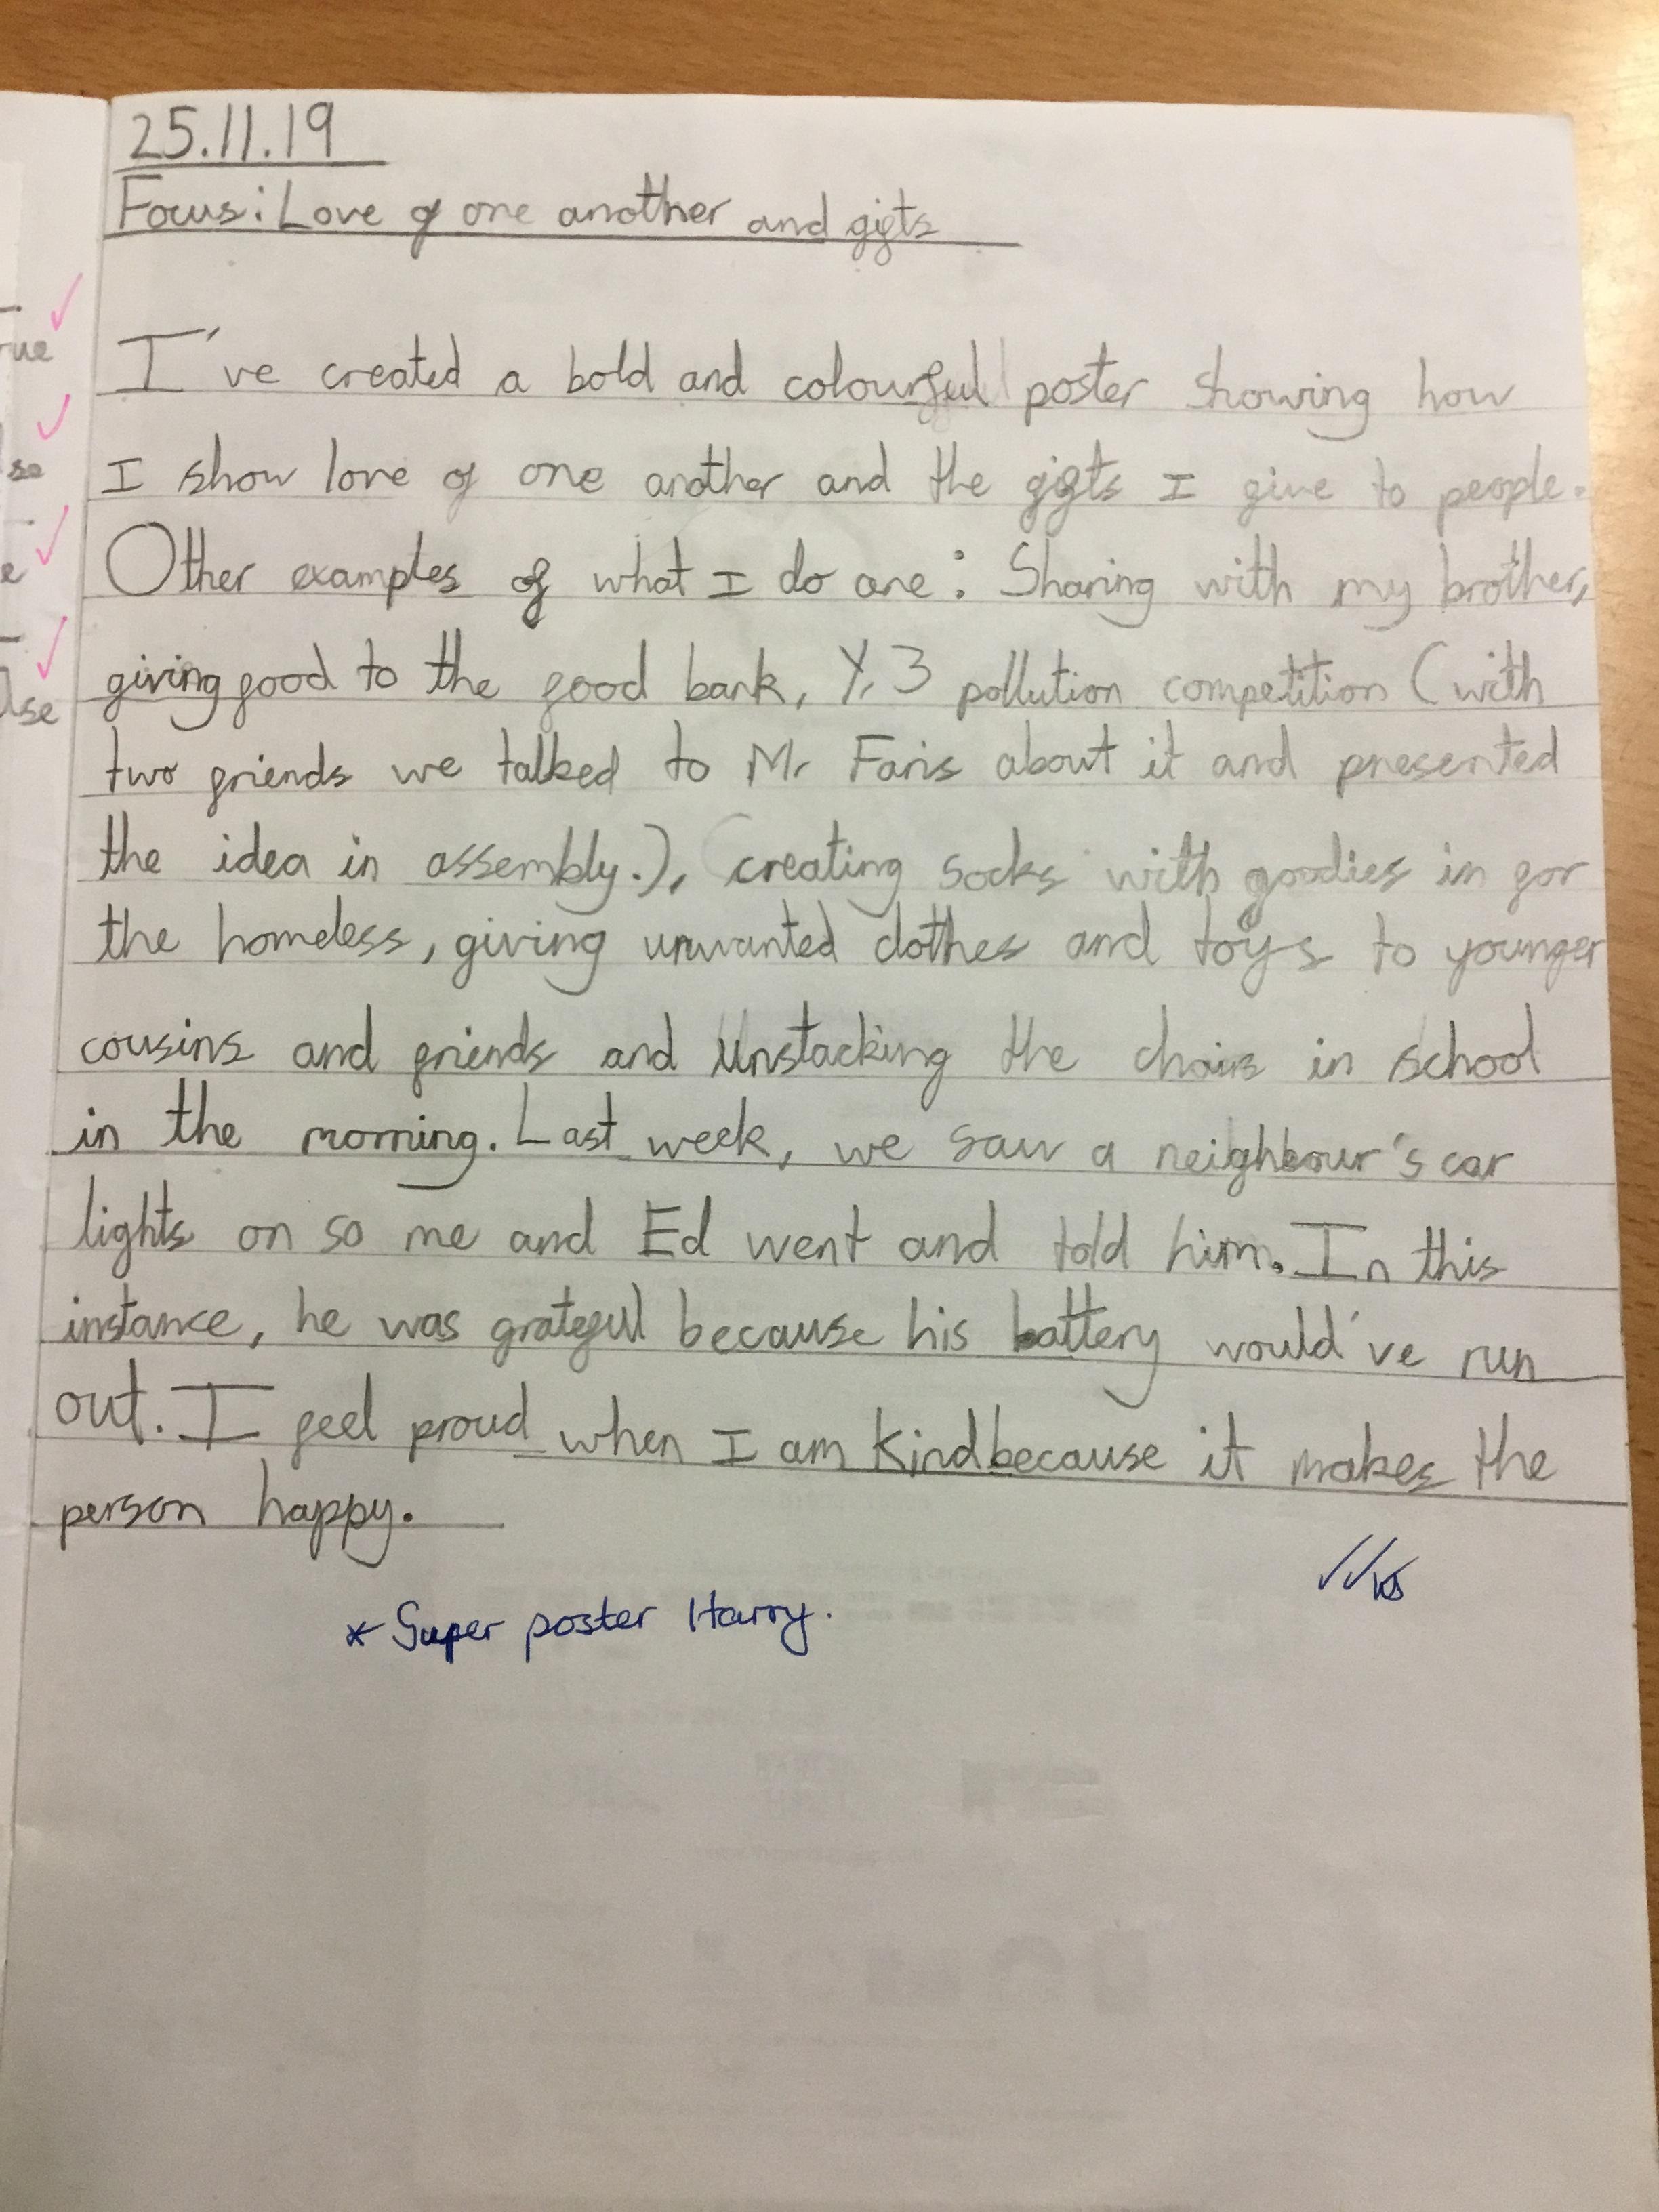 25.11.19
Focus: Love of one another and gifts
I've created a bold and colourful poster showing how
I show love of one another and the gifts I give to people.
Other examples of what I do are: Sharing with my brother,
giving food to the food bank, Y,3 pollution competition (with
two friends we talked to Mr Faris about it and presented
the idea in assembly.), creating socks with goodies in for
the homeless, giving unwanted clothes and toys to younger
cousins and friends and unstacking the chairs in school
in the morning. Last week, we saw a neighbour's car
lights on so me and Ed went and told him. In this
instance, he was grateful because his battery would've run
out. I feel proud when I am kind because it makes the
person happy.
* Super poster Harry.